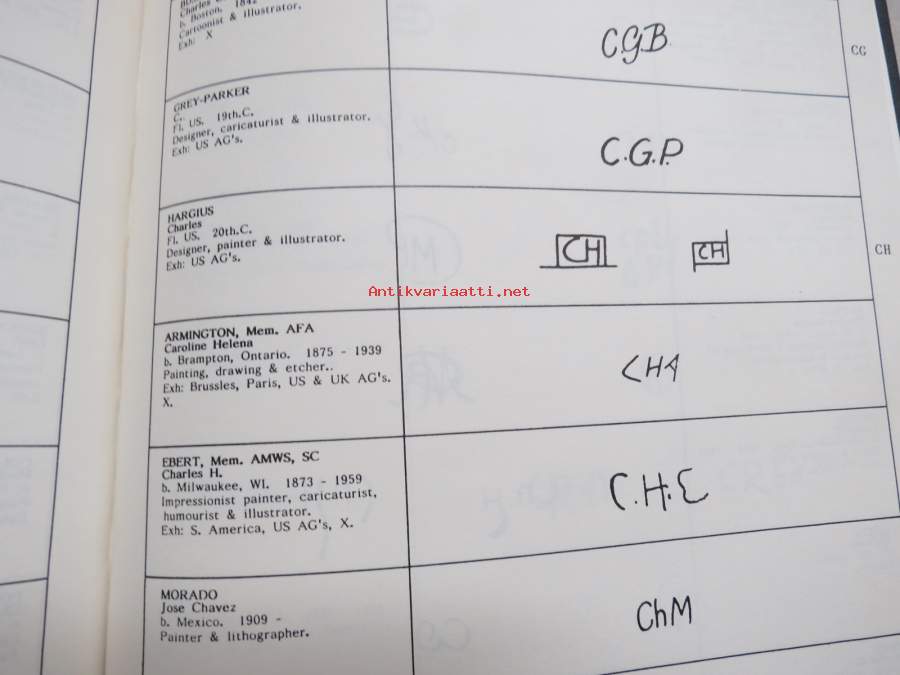 Charles
b. Boston. 1842
Cartoonist & illustrator.
Exh: X
C.G.B
CG
GREY-PARKER
C.
Fl. US. 19th.C.
Designer, caricaturist & illustrator.
Exh: US AG's.
C.G.P.
HARGIUS
Charles
Fl. US. 20th.C.
Designer, painter & illustrator.
Exh: US AG's.
CH
CH
CH
Antikvariaatti.net
ARMINGTON, Mem. AFA
Caroline Helena
b. Brampton, Ontario. 1875 - 1939
Painting, drawing & etcher..
Exh: Brussles, Paris, US & UK AG's.
X.
CHA
EBERT, Mem. AMWS, SC
Charles H.
b. Milwaukee, WI. 1873 - 1959
Impressionist painter, caricaturist,
humourist & illustrator.
Exh: S. America, US AG's, X.
C.H.E
MORADO
Jose Chavez
b. Mexico. 1909 -
Painter & lithographer.
ChM